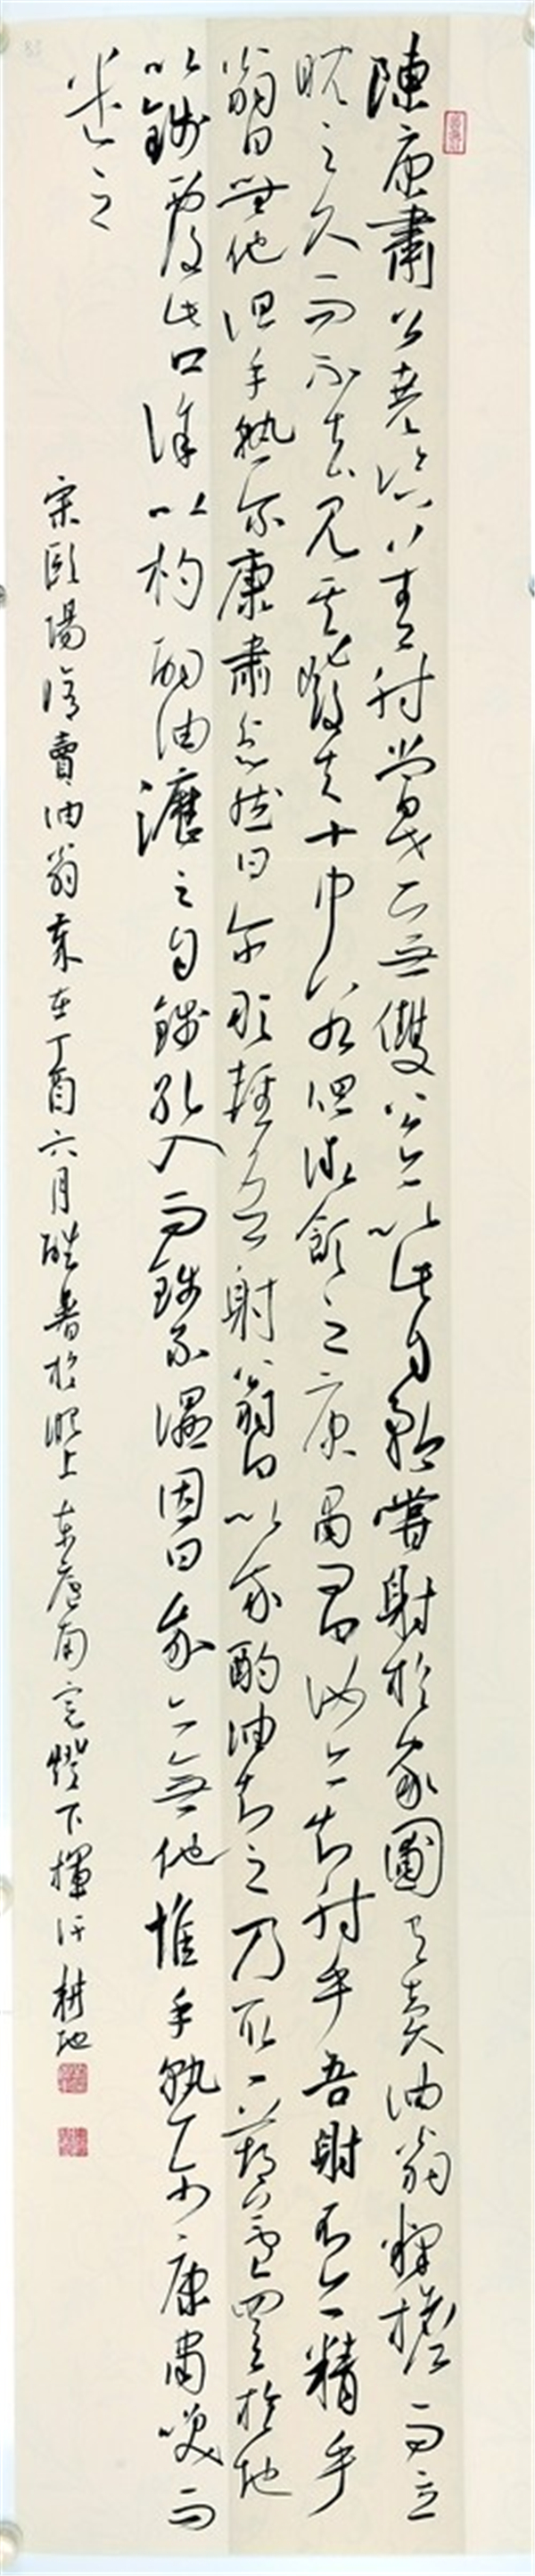 陳康肅公堯咨善射當世無雙公亦以此自矜嘗射於家圃有賣油翁釋擔而立
睨之久而不去見其發矢十中八九但微頷之康肅問曰汝亦知射乎吾射不亦精乎
翁曰無他但手熟尔康肅忿然曰尔敢輕吾射翁曰以我酌油知之乃取一葫蘆置於地
以錢覆其口徐以杓酌油瀝之自錢孔入而錢不濕因曰我亦無他惟手熟尔康肅笑而
遣之
宋歐陽脩賣油翁歲在丁酉六月酷暑於滬上東廬南窗燈下揮汗耕地